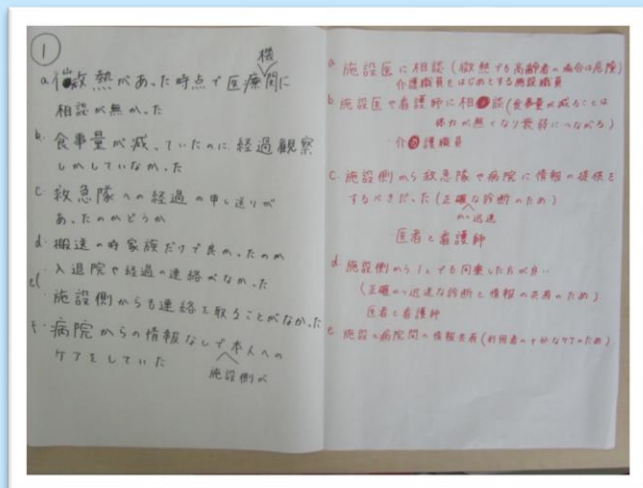 ①
a 微熱があった時点で医療機関に
相談が無かった
b. 食事量が減っていたのに経過観察
しかしていなかった
c 救急隊への経過の申し送りが
あったのかどうか
d. 搬送の時家族だけで良かったのか
e 入退院や経過の連絡がなかった
施設側からも連絡を取ることがなかった
f. 病院からの情報なしで施設側が本人への
ケアをしていた
a 施設医に相談(微熱でも高齢者の場合は危険)
介護職員をはじめとする施設職員
b 施設医や看護師に相談(食事量が減ることは
体力が無くなり衰弱につながる)
介護職員
c. 施設側から救急隊や病院に情報の提供を
するべきだった(正確かつ迅速な診断のため)
医者と看護師
d 施設側から1人でも同乗した方が良い
(正確かつ迅速な診断と情報の共有のため)
医者と看護師
e 施設と病院間の情報共有(利用者の十分なケアのため)